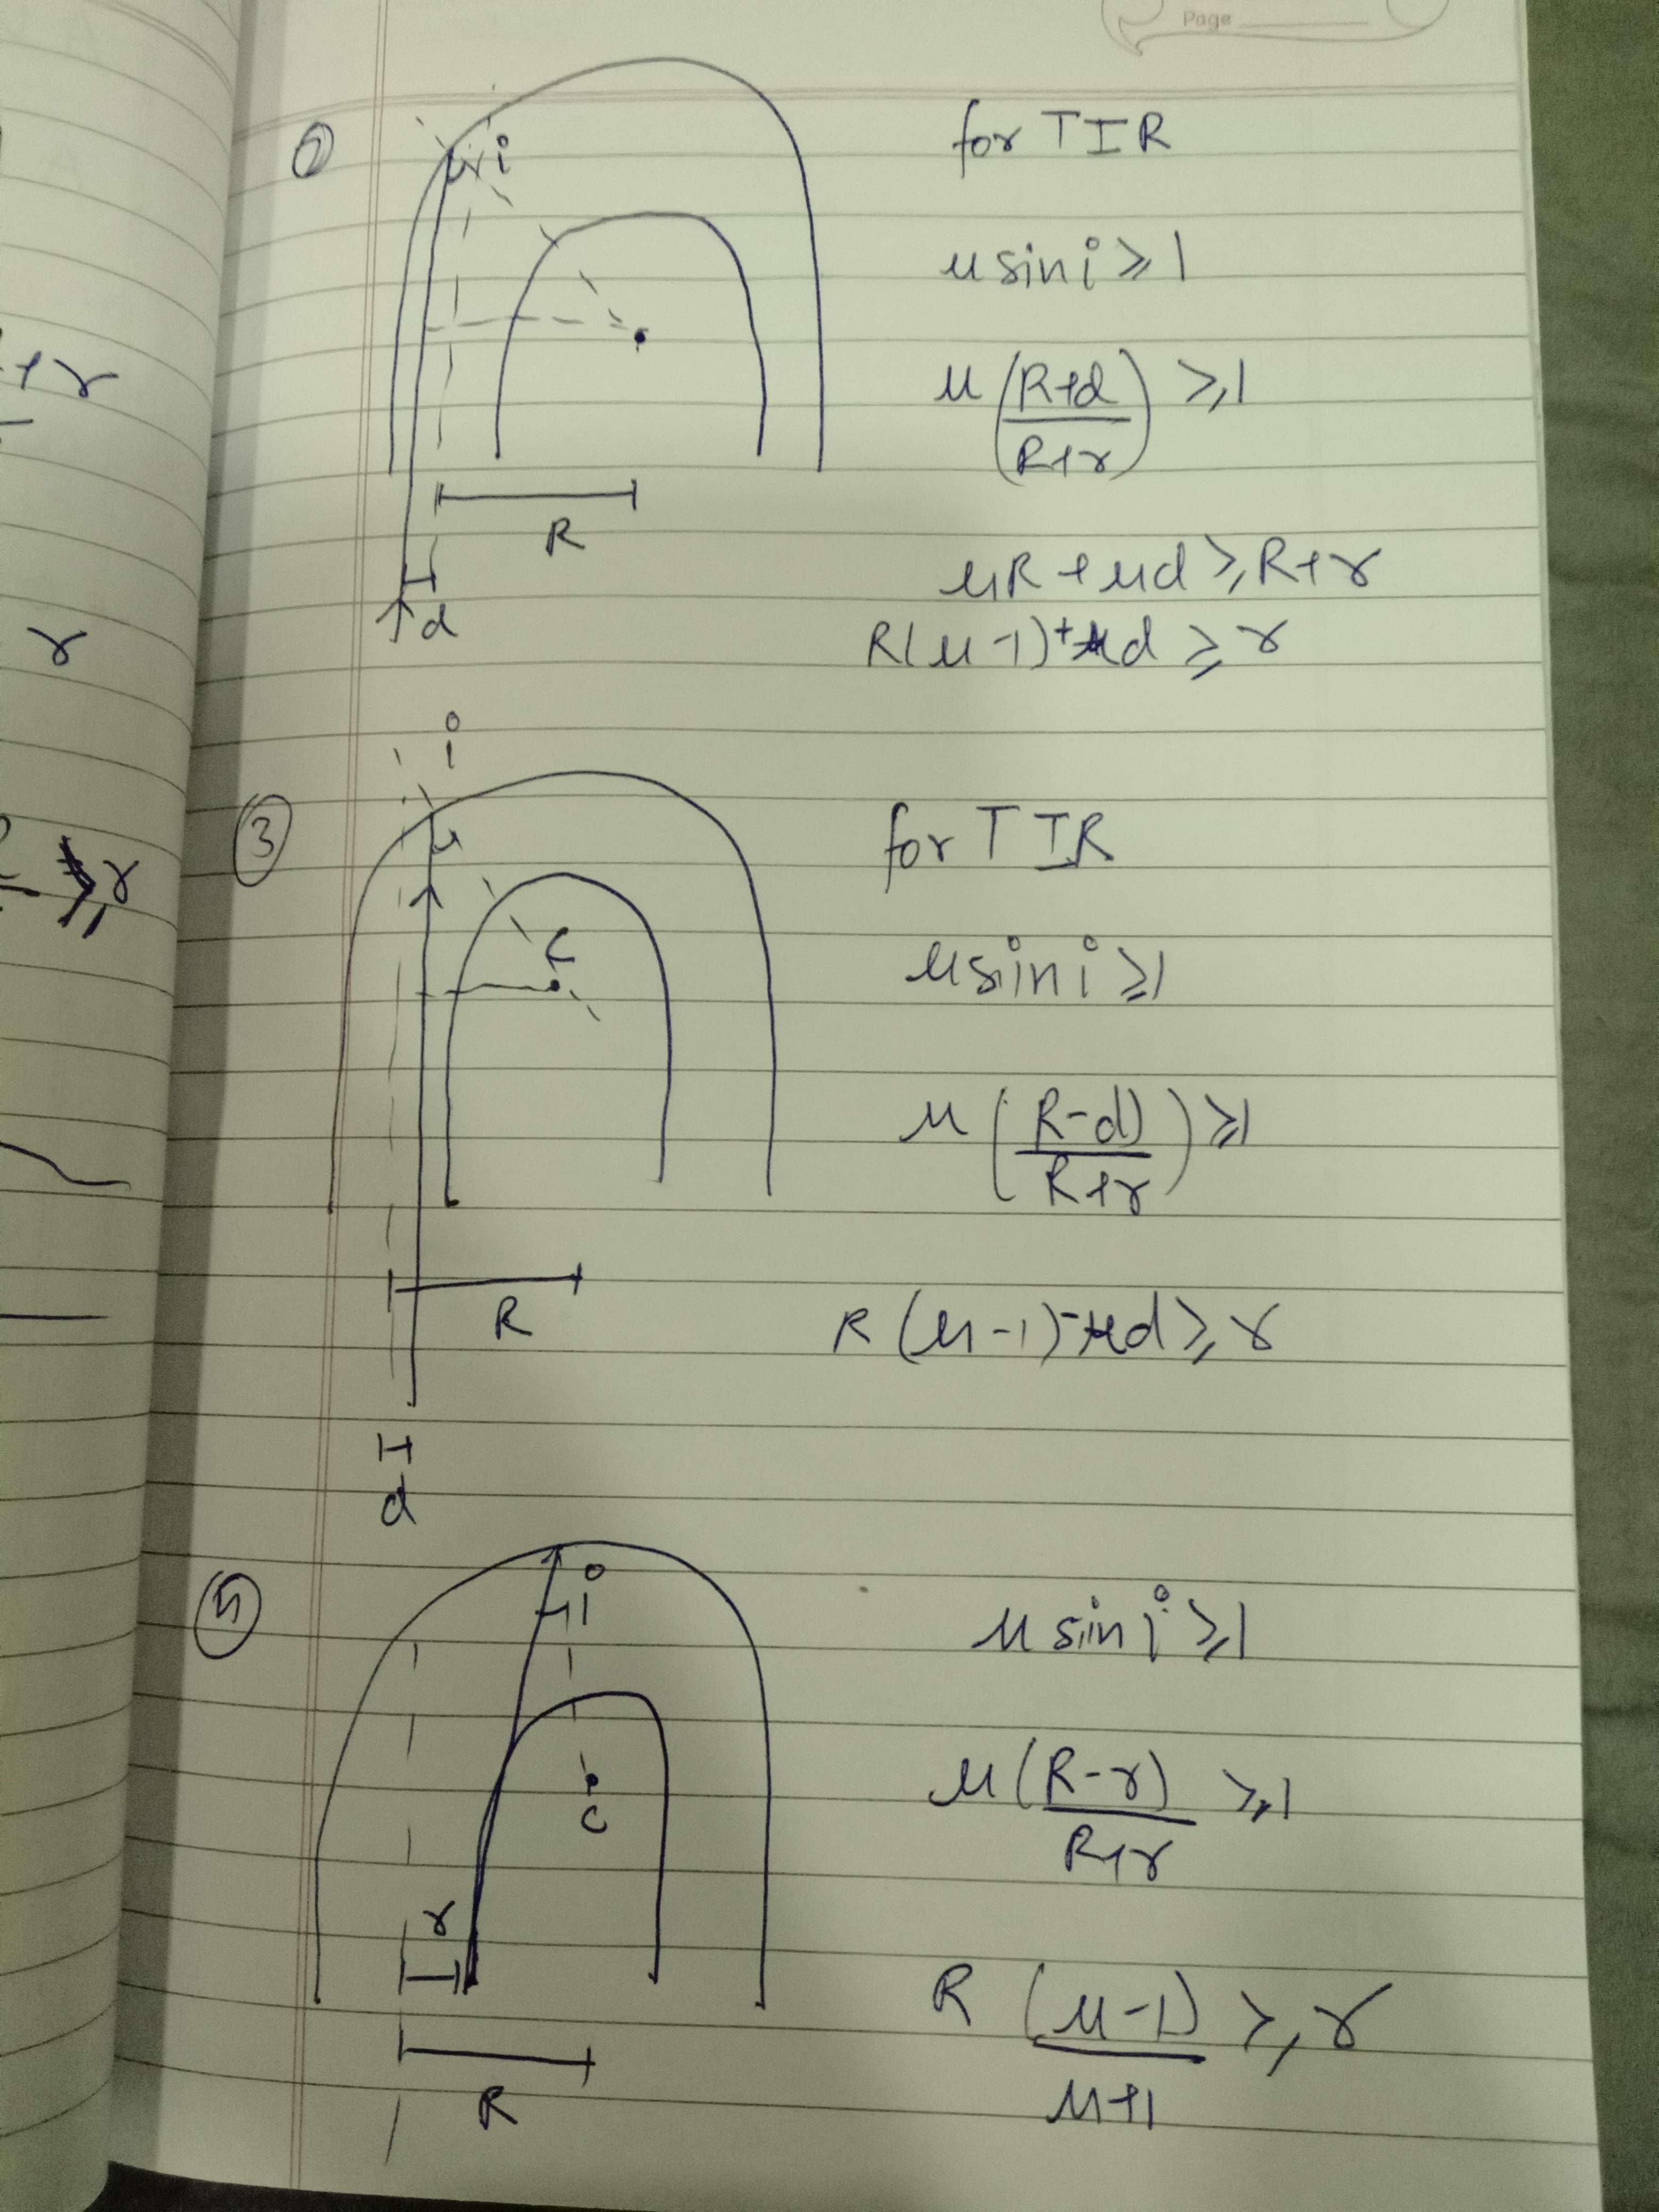 Page
+r
r
≥r
②
i
for TIR
μ sin i ≥ 1
μ (R+d / R+r) ≥ 1
R
d
μR + μd ≥ R+r
R(μ-1) + μd ≥ r
③
i
for TIR
C
μ sin i ≥ 1
μ (R-d) / R+r ≥ 1
R
R (μ-1) - μd ≥ r
d
⑤
i
μ sin i ≥ 1
C
μ (R-r) / R+r ≥ 1
r
R
R (μ-1) / μ+1 ≥ r